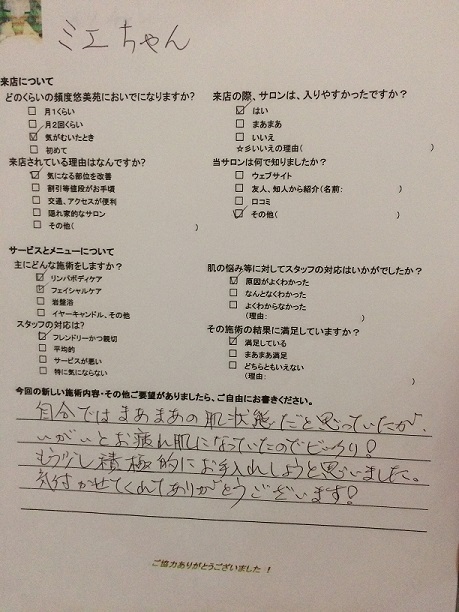 ミエちゃん
来店について
どのくらいの頻度悠美苑においでになりますか?
□ 月1くらい
□ 月2回くらい
☑ 気がむいたとき
□ 初めて
来店されている理由はなんですか?
☑ 気になる部位を改善
□ 割引等値段がお手頃
□ 交通、アクセスが便利
□ 隠れ家的なサロン
□ その他( )
来店の際、サロンは、入りやすかったですか?
☑ はい
□ まあまあ
□ いいえ
☆彡いいえの理由( )
当サロンは何で知りましたか?
□ ウェブサイト
□ 友人、知人から紹介(名前: )
□ 口コミ
☑ その他( )
サービスとメニューについて
主にどんな施術をしますか?
☑ リンパボディケア
☑ フェイシャルケア
□ 岩盤浴
□ イヤーキャンドル、その他
スタッフの対応は?
☑ フレンドリーかつ親切
□ 平均的
□ サービスが悪い
□ 特に気にならない
肌の悩み等に対してスタッフの対応はいかがでしたか?
☑ 原因がよくわかった
□ なんとなくわかった
□ よくわからなかった
(理由: )
その施術の結果に満足していますか?
☑ 満足している
□ まあまあ満足
□ どちらともいえない
(理由: )
今回の新しい施術内容・その他ご要望がありましたら、ご自由にお書きください。
自分ではまあまあの肌状態だと思っていたが、
いがいとお疲れ肌になっていたのでビックリ!
もう少し積極的にお手入れしようと思いました。
気付かせてくれてありがとうございます!
ご協力ありがとうございました!